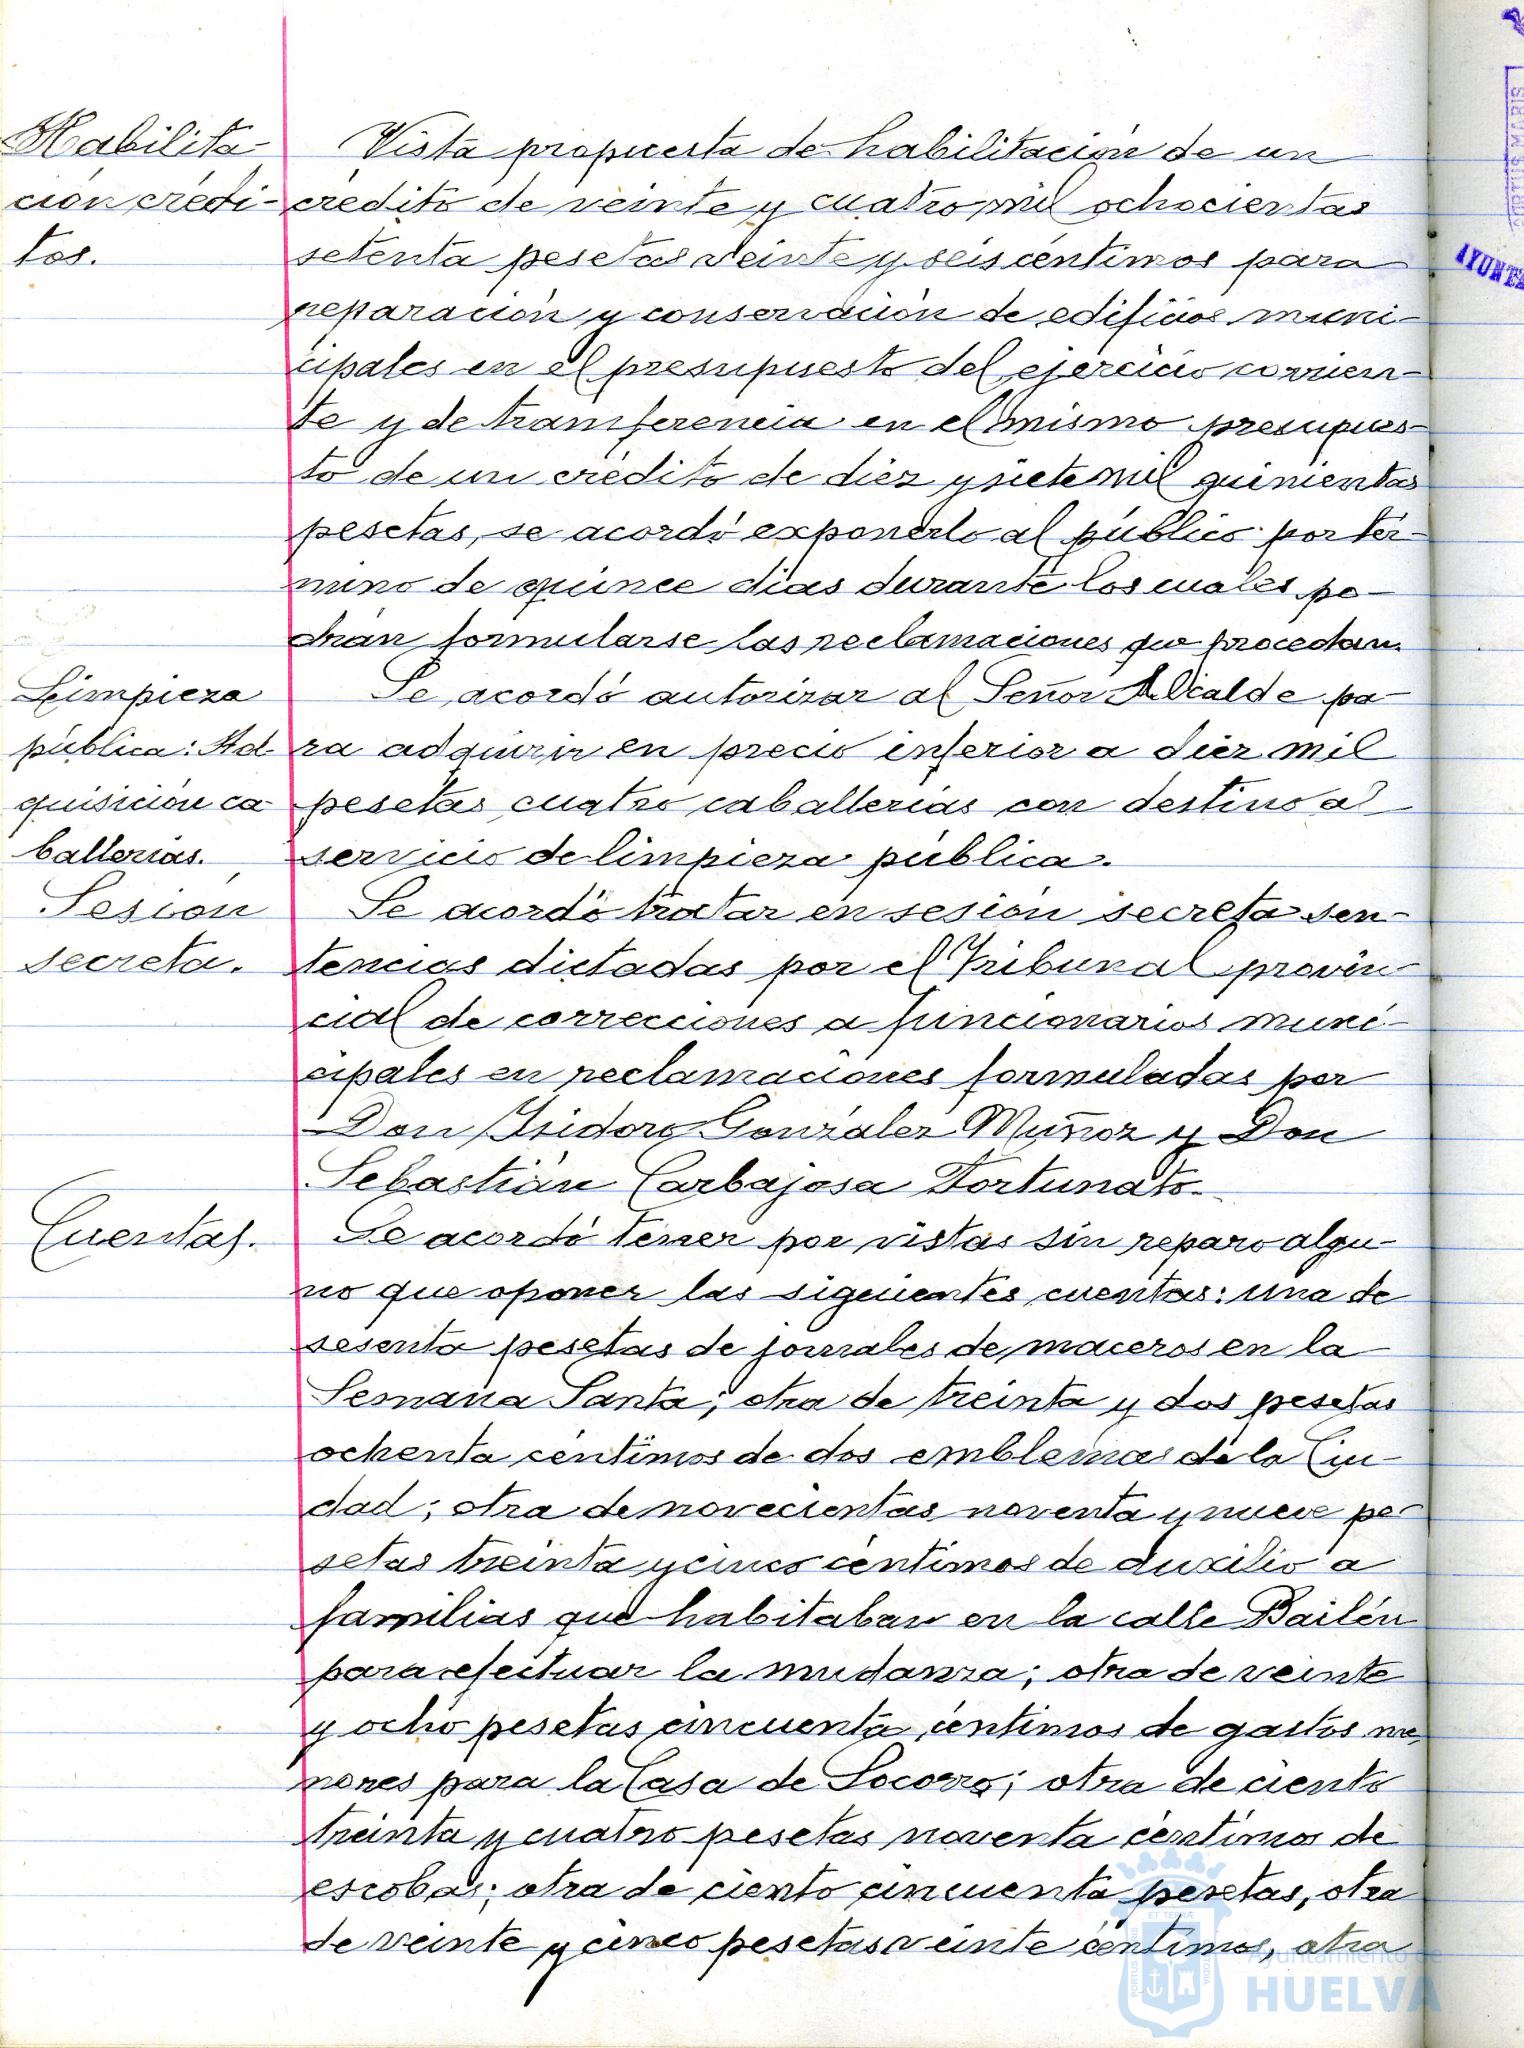 Habilita-
ción crédi-
tos.
Vista propuesta de habilitación de un
crédito de veinte y cuatro mil ochocientas
setenta pesetas veinte y seis céntimos para
reparación y conservación de edificios muni-
cipales en el presupuesto del ejercicio corrien-
te y de transferencia en el mismo presupues-
to de un crédito de diez y siete mil quinientas
pesetas, se acordó exponerlo al público por tér-
mino de quince dias durante los cuales po-
drán formularse las reclamaciones que procedan.
Limpieza
pública: Ad-
quisición ca-
ballerias.
Se acordó autorizar al Señor Alcalde pa-
ra adquirir en precio inferior a diez mil
pesetas cuatro caballerias con destino al
servicio de limpieza pública.
Sesión
secreta.
Se acordó tratar en sesión secreta sen-
tencias dictadas por el Tribunal provin-
cial de correcciones a funcionarios muni-
cipales en reclamaciones formuladas por
Don Isidoro González Muñoz y Don
Sebastián Carbajosa Fortunato.
Cuentas.
Se acordó tener por vistas sin reparo algu-
no que oponer las siguientes cuentas: una de
sesenta pesetas de jornales de maceros en la
Semana Santa; otra de treinta y dos pesetas
ochenta céntimos de dos emblemas de la Ciu-
dad; otra de novecientas noventa y nueve pe-
setas treinta y cinco céntimos de auxilio a
familias que habitaban en la calle Bailén
para efectuar la mudanza; otra de veinte
y ocho pesetas cincuenta céntimos de gastos me-
nores para la Casa de Socorro; otra de ciento
treinta y cuatro pesetas noventa céntimos de
escobas; otra de ciento cincuenta pesetas, otra
de veinte y cinco pesetas veinte céntimos, otra
PORTUS MARIS
AYUNTA
Ayuntamiento de
HUELVA